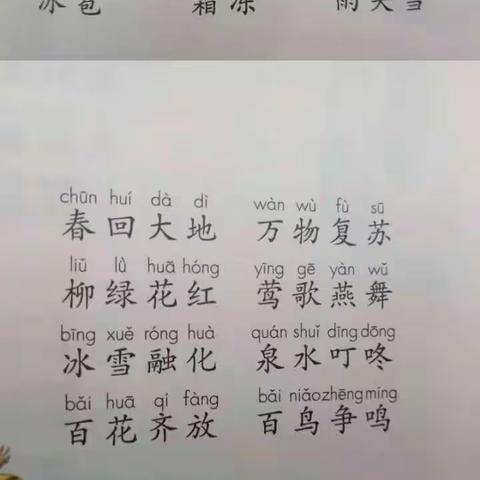 冰雹 霜冻 雨夹雪
chūn huí dà dì wàn wù fù sū
春回大地 万物复苏
liǔ lǜ huā hóng yīng gē yàn wǔ
柳绿花红 莺歌燕舞
bīng xuě róng huà quán shuǐ dīng dōng
冰雪融化 泉水叮咚
bǎi huā qí fàng bǎi niǎo zhēng míng
百花齐放 百鸟争鸣